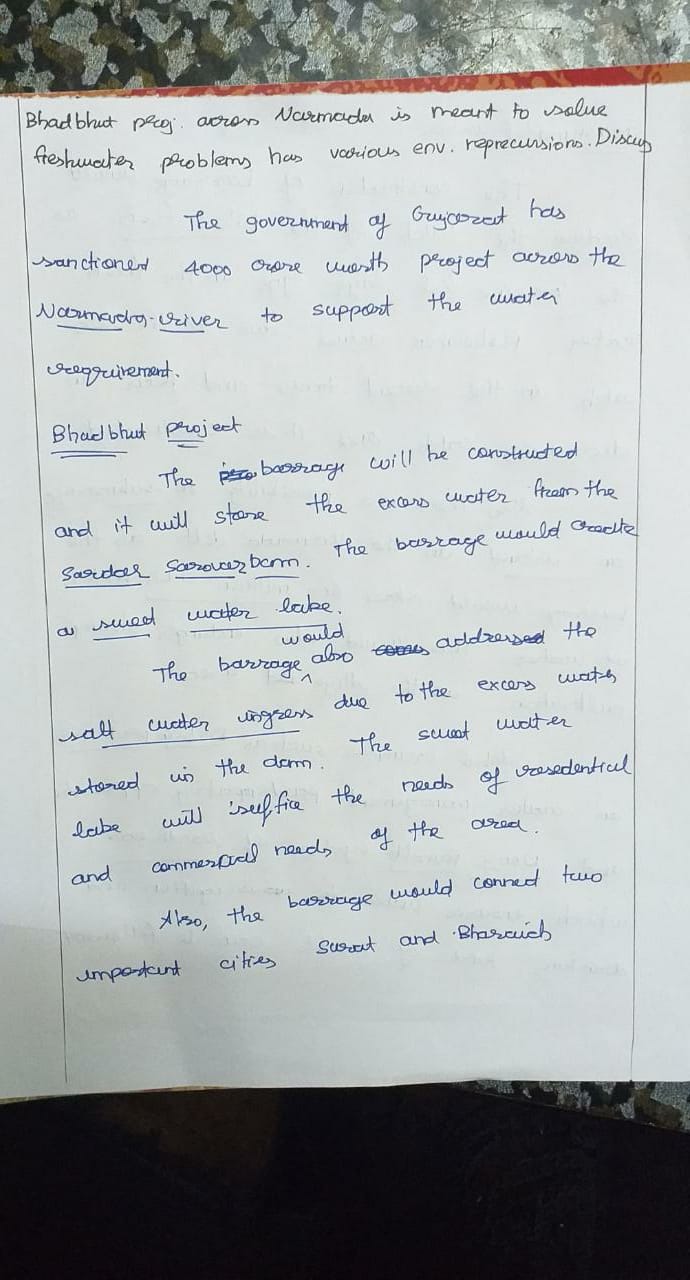 Bhadbhut proj. across Narmada is meant to solve
freshwater problems has various env. reprecursions. Discuss
The government of Gujarat has
sanctioned 4000 crore worth project across the
Narmada river to support the water
requirement.
Bhadbhut project
The barrage will be constructed
and it will store the excess water from the
Sardar Sarovar Dam. The barrage would create
a sweet water lake.
The barrage would also addressed the
salt water ingress due to the excess water
stored in the dam. The sweet water
lake will suffice the needs of resedential
and commercial needs of the area.
Also, the barrage would connect two
important cities Surat and Bharuch